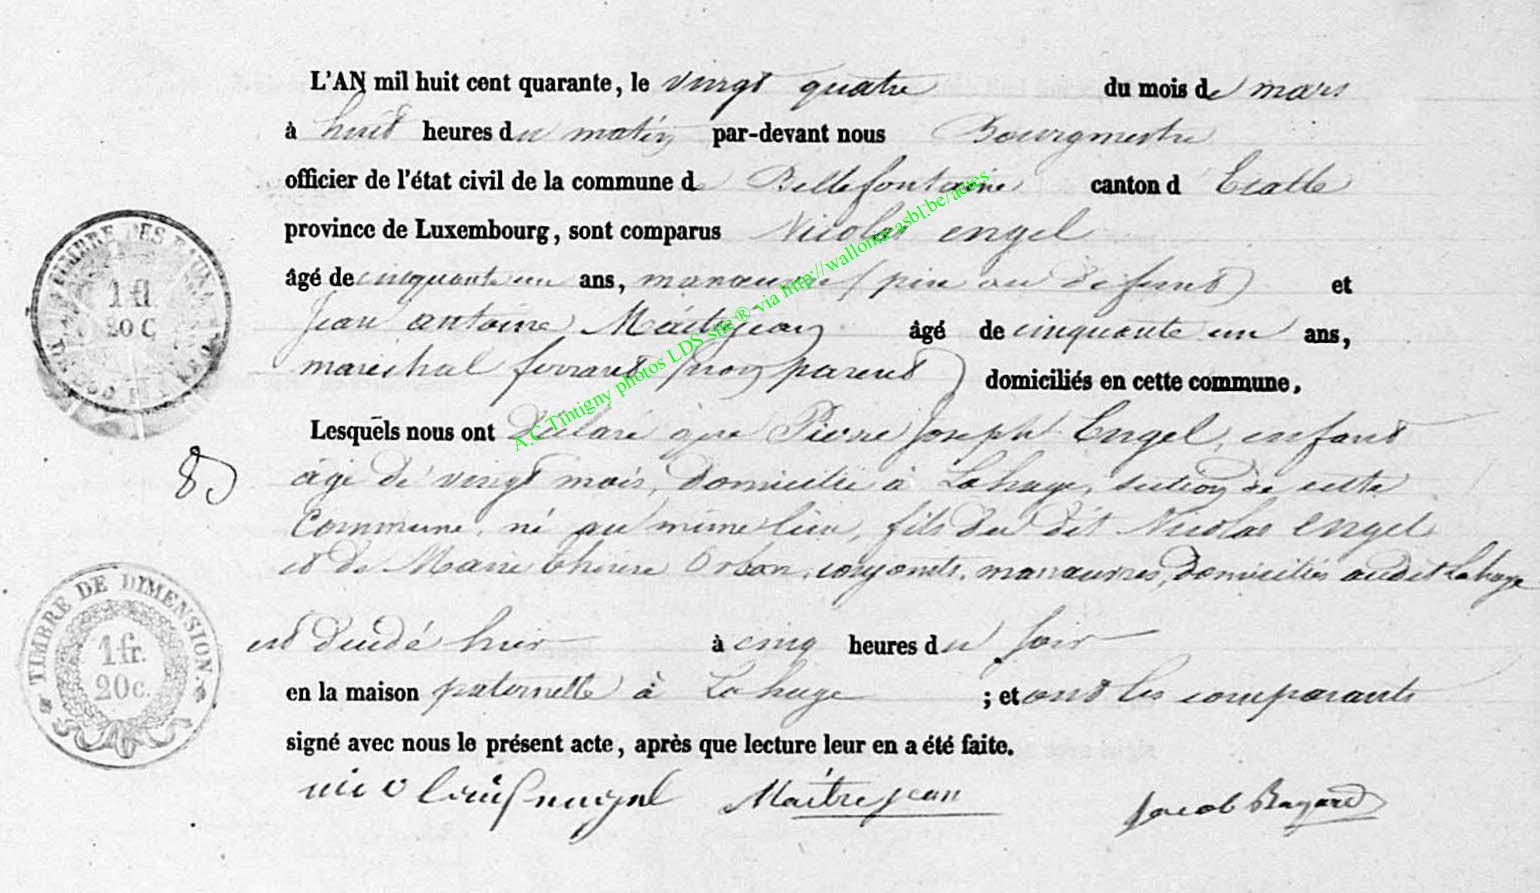 L'AN mil huit cent quarante, le vingt quatre du mois de mars
à huit heures du matin par-devant nous Bourgmestre
officier de l'état civil de la commune de Bellefontaine canton d' Etalle
province de Luxembourg, sont comparus Nicolas Engel
âgé de cinquante un ans, manœuvre (père au défunt) et
Jean antoine Maitrejean âgé de cinquante un ans,
maréchal ferrant (non parent) domiciliés en cette commune,
Lesquels nous ont déclaré que Pierre Joseph Engel, enfant
âgé de vingt mois, domicilié à Lahage, section de cette
Commune, né au même lieu, fils du dit Nicolas Engel
et de Marie thérèse Orban, conjoints, manœuvres, domiciliés audit Lahage
est décédé hier à cinq heures du soir
en la maison paternelle à Lahage ; et ont les comparants
signé avec nous le présent acte, après que lecture leur en a été faite.
Maitrejean Jacob Bayard
TIMBRE DES
1 fl.
20 C
8
TIMBRE DE DIMENSION.
1 fr.
20 c.
A.C.Tintigny photos LDS site ® via http://wallonia-asbl.be/actes